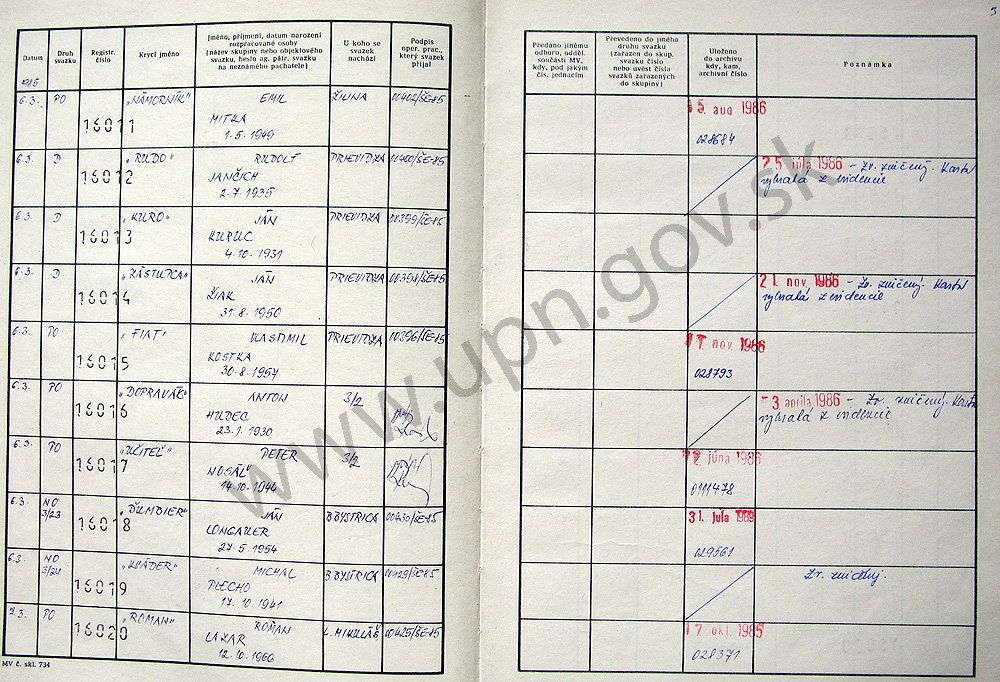 3
Datum
Druh svazku
Registr. číslo
Krycí jméno
Jméno, příjmení, datum narození
rozpracované osoby
(název skupiny nebo objektového
svazku, heslo ag. pátr. svazku
na neznámého pachatele)
U koho se
svazek
nachází
Podpis
oper. prac.,
který svazek
přijal
Předáno jinému
odboru, odděl.
součásti MV,
kdy, pod jakým
čís. jednacím
Převedeno do jiného
druhu svazku
(zařazen do skup.
svazku číslo
nebo uvést čísla
svazků zařazených
do skupiny)
Uloženo
do archivu
kdy, kam,
archivní číslo
Poznámka
1985
6.3. PO 16011 "NÁMORNÍK" EMIL ŽILINA 00402/ŠE-85 5. aug 1986
MITKA
1.5.1949 028684
6.3 D 16012 "RUDO" RUDOLF PRIEVIDZA 00400/ŠE-85 25. júla 1986 - Zv. zničený. Karta
JANČICH vybratá z evidencie
2.7.1935
6.3. D 16013 "KURO" JÁN PRIEVIDZA 00399/ŠE-85
KURUC
4.10.1931
6.3. D 16014 "ZÁSTUPCA" JÁN PRIEVIDZA 00398/ŠE-85 21. nov. 1986 - Zv. zničený. Karta
ŽIAK vybratá z evidencie
31.8.1950
6.3. PO 16015 "FIAT" VLASTIMIL PRIEVIDZA 00396/ŠE-85 11 nov. 1986
KOSTKA
30.8.1957 028793
6.3. PO 16016 "DOPRAVÁK" ANTON 3/2 3 apríla 1986 - Zv. zničený. Karta
HUDEC vybratá z evidencie
23.1.1930
6.3. PO 16017 "UČITEĽ" PETER 3/2 12 júna 1986
NOSÁĽ
14.10.1944 0111478
6.3. NO 3/23 16018 "ĎUMBIER" JÁN B.BYSTRICA 00430/ŠE-85 31. júla 1989
LONGAUER
27.5.1954 029561
6.3. NO 3/24 16019 MICHAL B.BYSTRICA 00429/ŠE-85 Zv. zničený.
PLECHO
17.10.1941
7.3. PO 16020 "ROMAN" ROMAN L. MIKULÁŠ 00425/ŠE-85 17 okt. 1985
LAZAR
12.10.1966 028371
MV č. skl. 734
www.upn.gov.sk